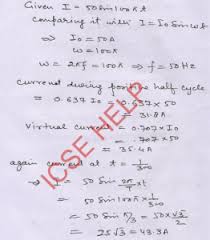 Given I = 50 sin 100πt
comparing it with I = I₀ sin wt
⇒ I₀ = 50A
w = 100π
w = 2πf = 100π ⇒ f = 50Hz
Current during positive half cycle
= 0.637 I₀ = 0.637 × 50
= 31.8A
Virtual current = 0.707 × I₀
= 0.707 × 50
= 35.4A
again current at t = 1/300
I = 50 Sin 2π/T × t
= 50 Sin 100π × 1/300
= 50 Sin π/3 = 50 × √3/2
= 25√3 = 43.3A
ICSE HELP